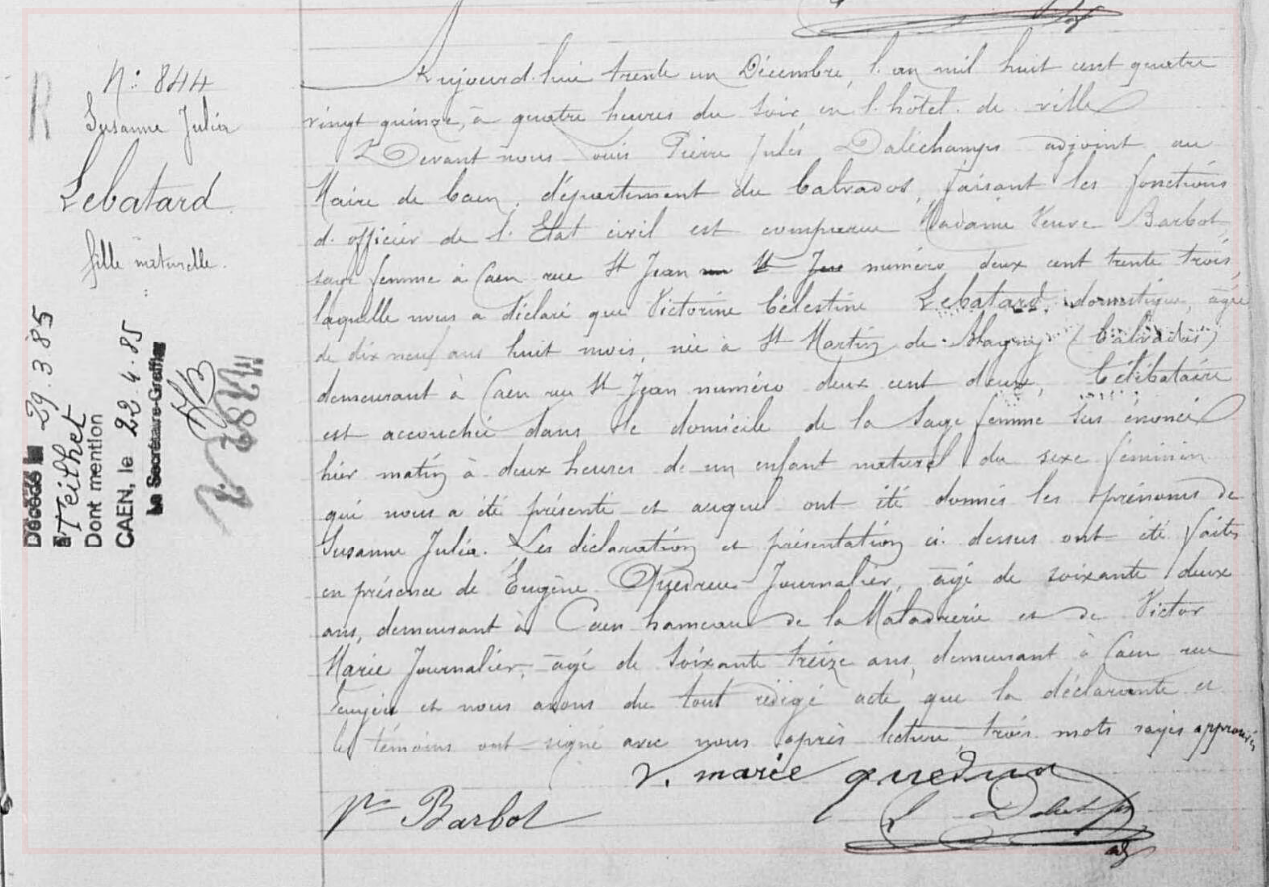 R
N: 844
Susanne Julia
Lebatard
fille naturelle.
Décédé le 29.3.85
à Teilhet
Dont mention
CAEN, le 22.4.85
Le Secrétaire-Greffier
Aujourd'hui trente un Décembre, l'an mil huit cent quatre
vingt quinze, à quatre heures du soir en l'hôtel de ville
Devant nous Louis Pierre Jules Daléchamps adjoint au
Maire de Caen, département du Calvados, faisant les fonctions
d'officier de l'Etat civil est comparue Madame Veuve Barbot,
sage femme à Caen rue St Jean numéro deux cent trente trois,
laquelle nous a déclaré que Victorine Célestine Lebatard, domestique, âgée
de dix neuf ans huit mois, née à St Martin de Blagny (Calvados)
demeurant à Caen rue St Jean numéro deux cent deux, Célibataire
est accouchée dans le domicile de la sage femme sus énoncé
hier matin à deux heures de un enfant naturel du sexe féminin
qui nous a été présenté et auquel ont été donnés les prénoms de
Susanne Julia. Les déclaration et présentation ci-dessus ont été faites
en présence de Eugène Journalier, âgé de soixante deux
ans, demeurant à Caen hameau de la Maladrerie et de Victor
Marie Journalier, âgé de soixante treize ans, demeurant à Caen rue
et nous avons du tout rédigé acte que la déclarante et
les témoins ont signé avec nous après lecture, trois mots rayés approuvés
V. marie
Vve Barbot